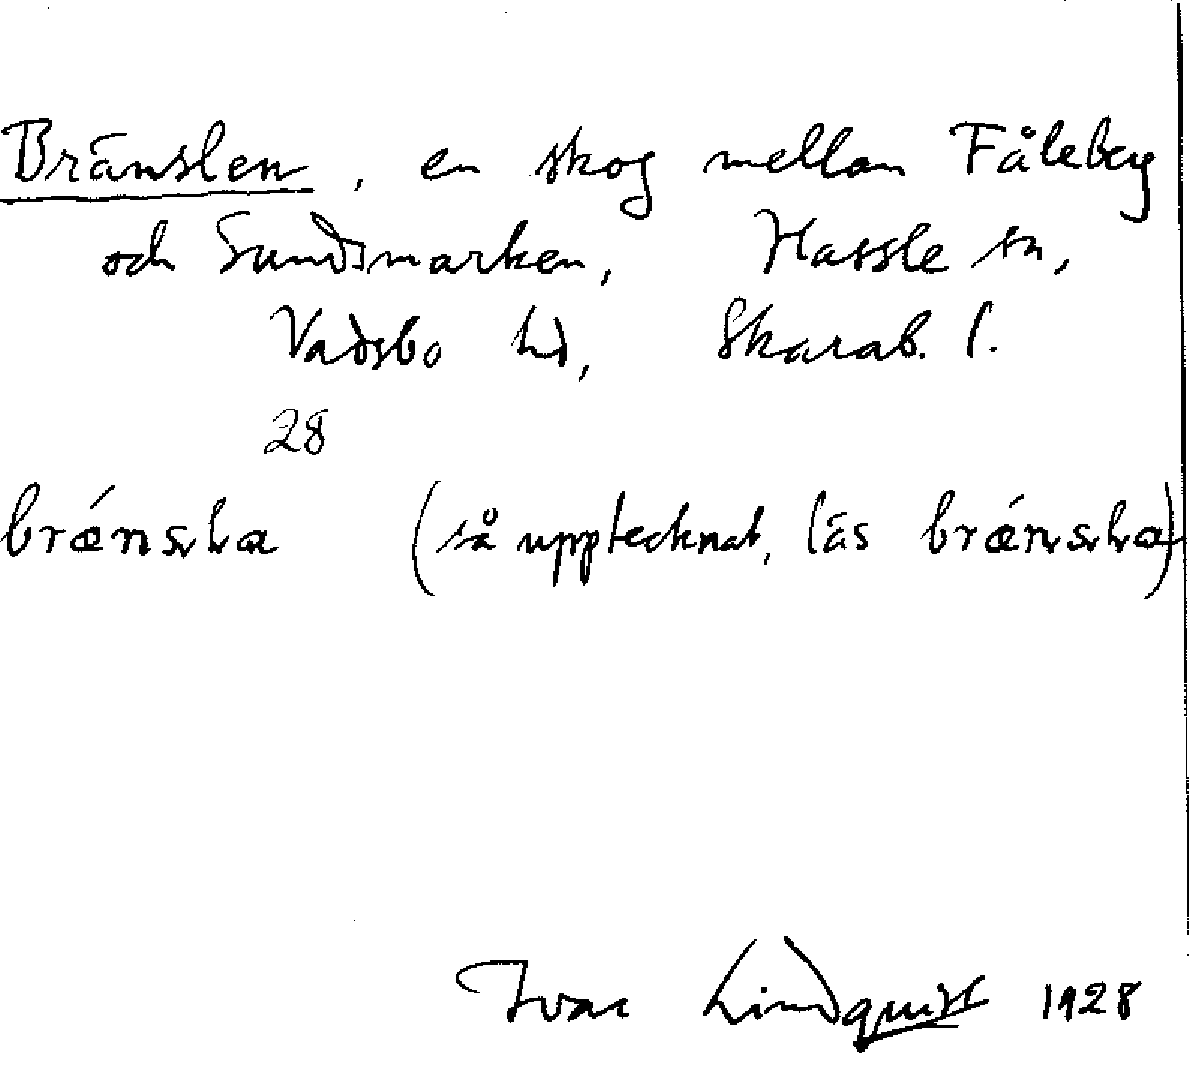 Bränslen, en skog mellan Fåleberg
och Sundsmarken, Hassle sn,
Vadsbo hd, Skarab. l.
28
(så upptecknat, läs
Ivar Lindquist 1928